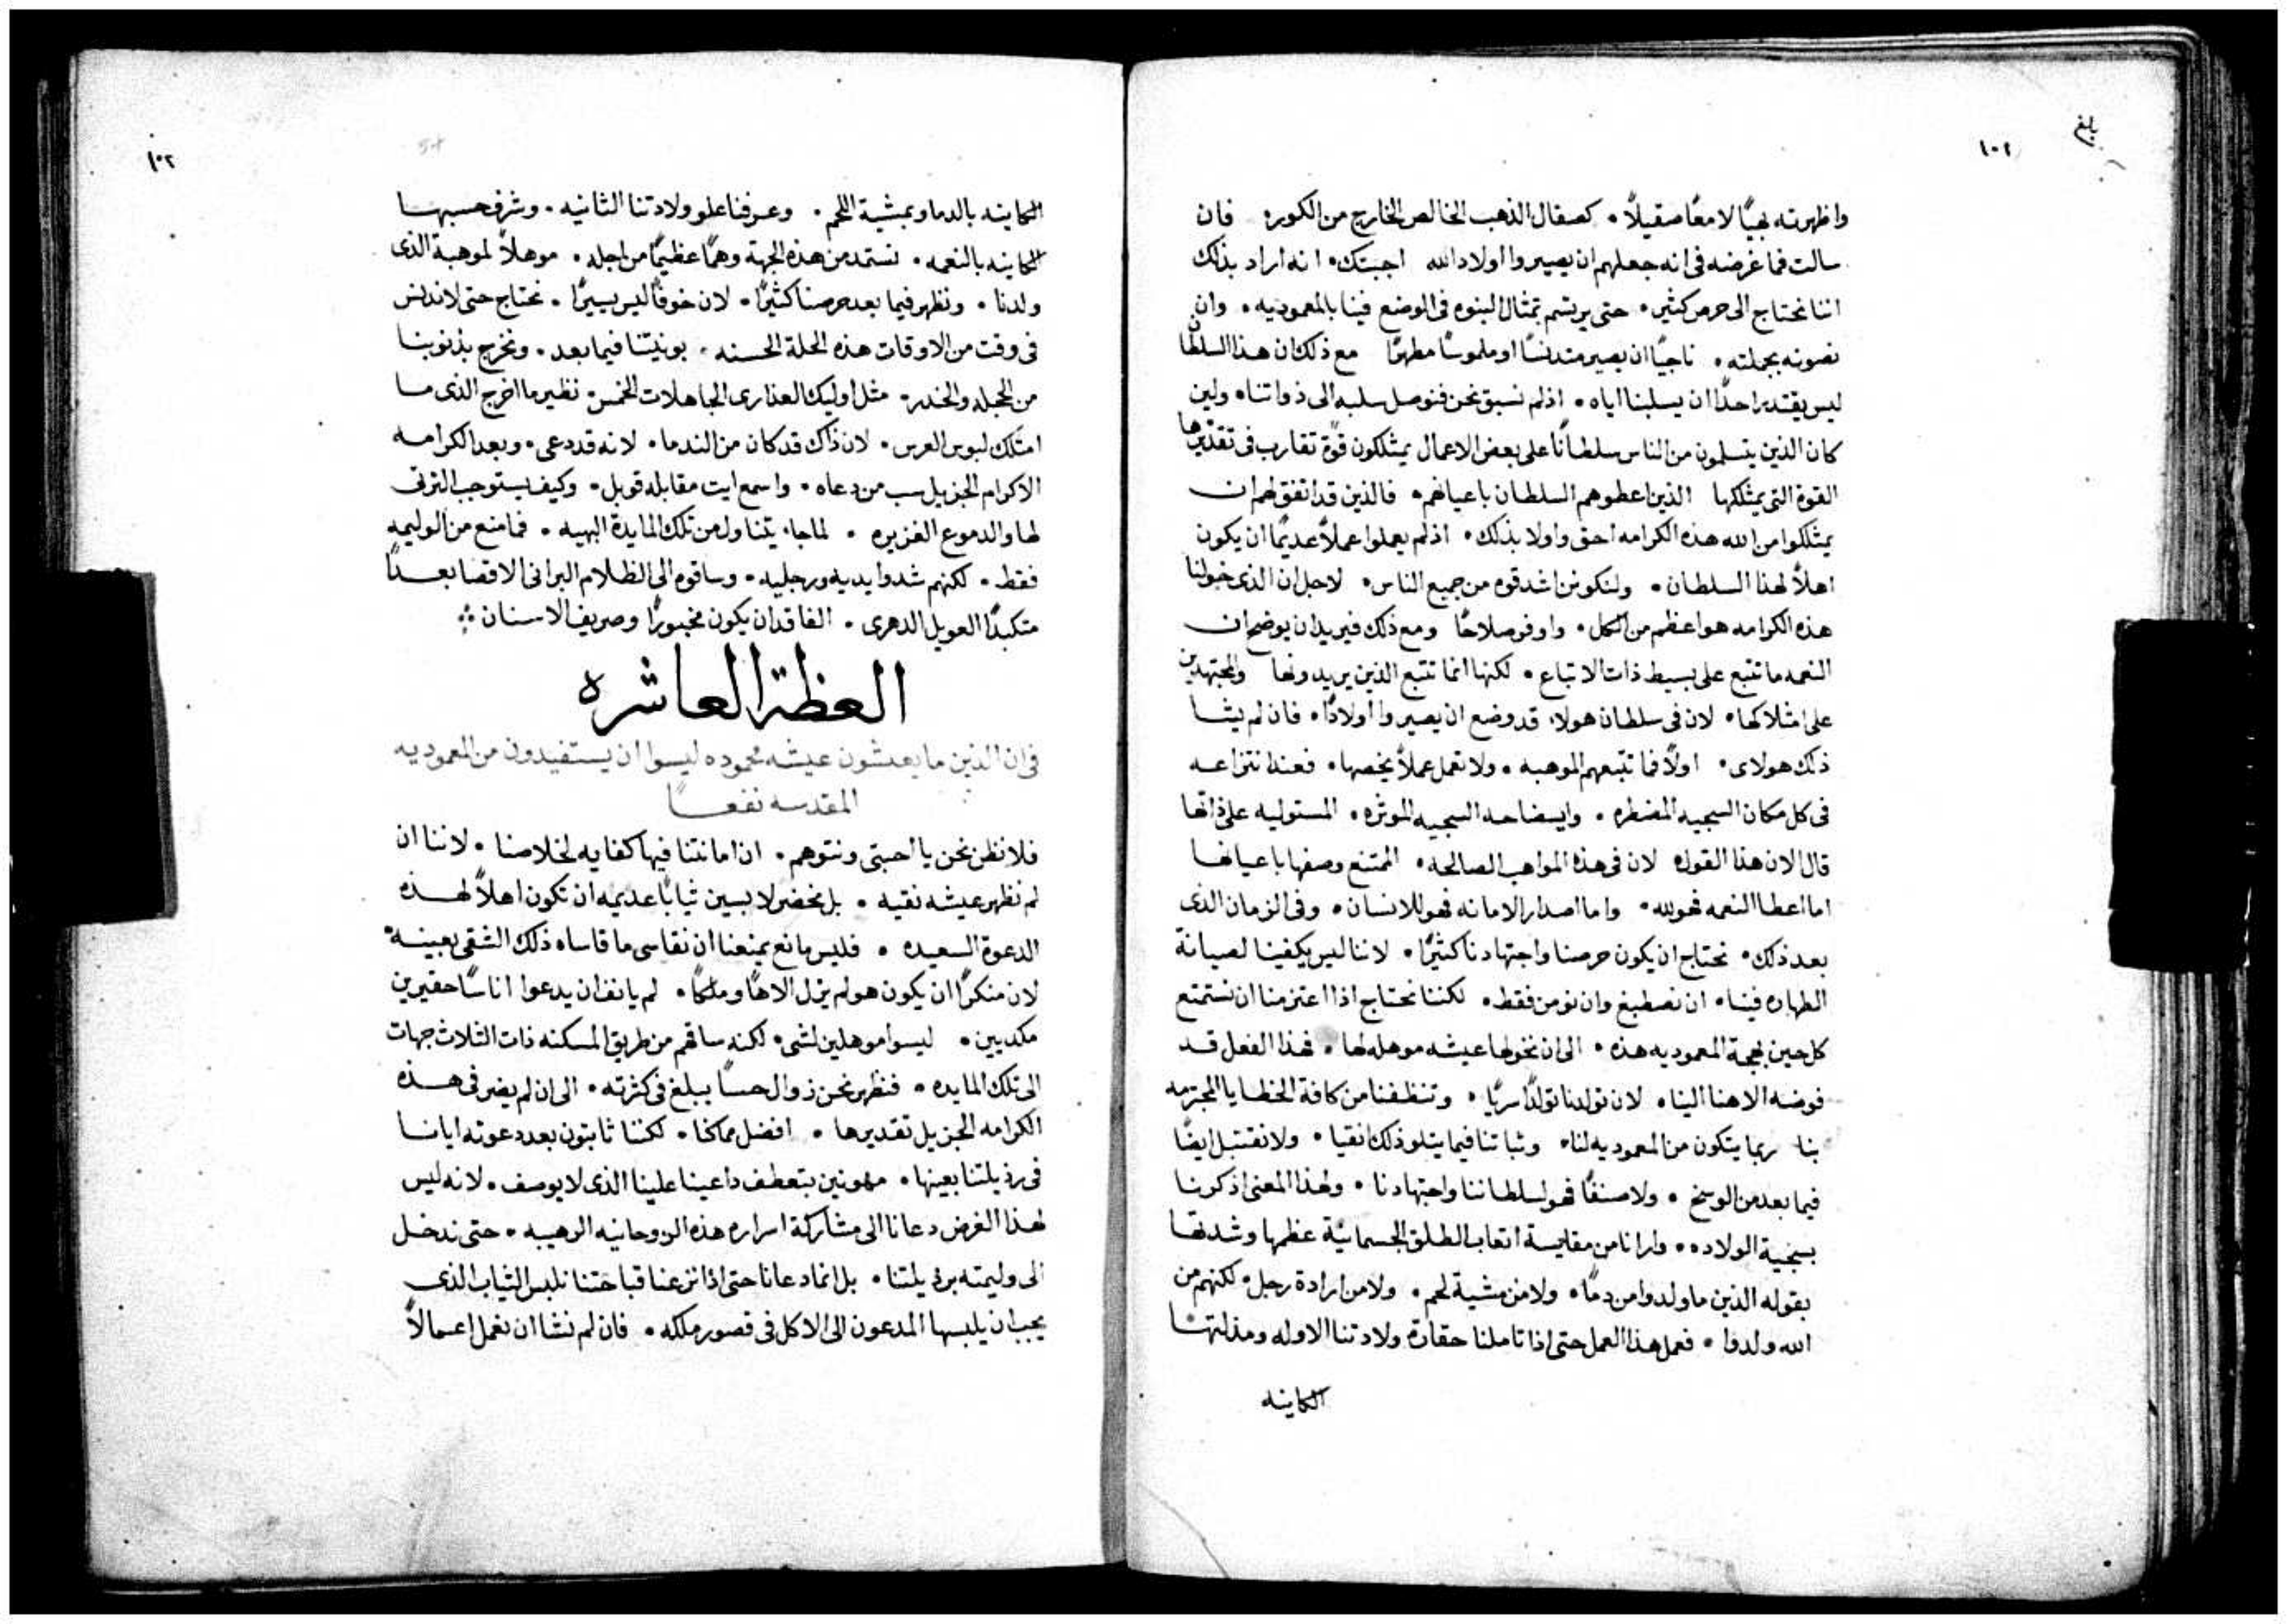 بلغ
١٠٢
واظهرته بهيًا لامعًا صقيلاً • كصقال الذهب الخالص الخارج من الكوره فان
سالت فما غرضه فى انه جعلهم ان يصيروا اولاد الله اجبتك • انه اراد بذلك
اننا نحتاج الى حرص كثير • حتى يرتسم تمثال البنوه فى الوضع فينا بالمعموديه • وان
نصونه بجملته • ناجيًا ان يصير متدنسًا او ملموسًا مطهرًا مع ذلك ان هذا السلطان
ليس يقتدر احدًا ان يسلبنا اياه • اذ لم نسبق نحن فنوصل سلبه الى ذواتنا • ولين
كان الذين يتسلمون من الناس سلطانًا على بعض الاعمال يمتلكون قوةً تقارب فى تقديرها
القوة التى يمتلكها الذين اعطوهم السلطان باعيانهم • فالذين قد اتفق لهم ان
يمتلكوا من الله هذه الكرامه احق واولا بذلك • اذ لم يعملوا عملاً عديمًا ان يكون
اهلاً لهذا السلطان • ولتكونن اشد قوه من جميع الناس • لاجل ان الذى خولنا
هذه الكرامه هو اعظم من الكل • واوفر صلاحًا ومع ذلك فيريد ان يوضح ان
النعمه ما تتبع على بسيط ذات الاتباع • لكنها انما تتبع الذين يريدونها والمجتهدين
على امثلاكها • لان فى سلطان هولاء قد وضع ان يصيروا اولادًا • فان لم يشا
ذلك هولاى • اولاً فما تتبعهم الموهبه • ولا تعمل عملاً يخصها • فعند انتزاعه
فى كل مكان السجيه المضطره • وايضاحه السجيه الموثره • المستوليه على ذاتها
قال الان هذا القول • لان فى هذه المواهب الصالحه • الممتنع وصفها باعيانها
اما اعطا النعمه فهو لله • واما اصدار الامانه فهو للانسان • وفى الزمان الذى
بعد ذلك • نحتاج ان يكون حرصنا واجتهادنا كثيرًا • لاننا ليس يكفينا لصيانة
الطهاره فينا • ان نصطبغ وان نومن فقط • لكننا نحتاج اذا اعتزمنا ان نستمتع
كل حين بهجة المعموديه هذه • الى ان نخولها عيشه موهله لها • فهذا الفعل قد
فوضه الاهنا الينا • لان تولدنا تولدًا سريًا • وتنظفنا من كافة الخطايا المجترمه
بنا ربما يتكون من المعموديه لنا • وثباتنا فيما يتلو ذلك انقيا • ولا نقتبل ايضًا
فيما بعد من الوسخ • ولا صنفًا فهو لسلطاننا واجتهادنا • ولهذا المعنى اذكرنا
بسجية الولاده • وارانا من مقايسة اتعاب الطلق الجسمانية عظمها وشدتها
بقوله الذين ما ولدوا من دمًا • ولا من مشية لحم • ولا من ارادة رجل • لكنهم من
الله ولدوا • فعمل هذا العمل حتى اذا تاملنا حقارة ولادتنا الاوله ومذلتها
الكاينه
١٠٣
الكاينه بالدما وبمشية اللحم • وعرفنا علو ولادتنا الثانيه • وشرف حسبها
الكاينه بالنعمه • نستمد من هذه الجهة وهمًا عظيمًا من اجله • موهلاً لموهبة الذى
ولدنا • ونظهر فيما بعد حرصنا كثيرًا • لان خوفًا ليس يسيرًا • نحتاج حتى لا ندنس
فى وقت من الاوقات هذه الحلة الحسنه • بونيتنا فيما بعد • ونخرج بذنوبنا
من الحجله والخدر • مثل اوليك العذارى الجاهلات الخمس • نظير ما اخرج الذى ما
امتلك لبوس العرس • لان ذاك قد كان من الندما • لانه قد دعى • وبعد الكرامه
الاكرام الجزيل سب من دعاه • واسمع ايت مقابله قوبل • وكيف يستوجب الترثى
لها والدموع الغزيره • لما جاء يتناول من تلك المايدة البهيه • فما منع من الوليمه
فقط • لكنهم شدوا يديه ورجليه • وساقوه الى الظلام البرانى الاقصا بعدًا
متكبدًا العويل الدهرى • الفاقد ان يكون مخبورًا وصريف الاسنان
العظة العاشره
فى ان الذين ما يعيشون عيشه محموده ليسوا ان يستفيدون من المعموديه
المقدسه نفعًا
فلا نظن نحن يا احبتى ونتوهم • ان امانتنا فيها كفايه لخلاصنا • لاننا ان
لم نظهر عيشه نقيه • بل نحضر لابسين ثيابًا عديمه ان تكون اهلاً لهذه
الدعوة السعيده • فليس مانع يمنعنا ان نقاسى ما قاساه ذلك الشقى بعينه
لان منكرًا ان يكون هو لم يزل الاهًا وملكًا • لم يانف ان يدعوا اناسًا حقيرين
مكديين • ليسوا موهلين لشى • لكنه ساقهم من طريق المسكنه ذات الثلاث جهات
الى تلك المايده • فنظهر نحن زوال حسًا يبلغ فى كثرته • الى ان لم يضر فى هذه
الكرامه الجزيل تقديرها • افضل مما كنا • لكننا ثابتون بعد دعوته ايانا
فى رذيلتنا بعينها • مهونين بتعطف داعينا علينا الذى لا يوصف • لانه ليس
لهذا الغرض دعانا الى مشاركة اسراره هذه الروحانيه الرهيبه • حتى ندخل
الى وليمته برذيلتنا • بل انما دعانا حتى اذا نزعنا قباحتنا نلبس الثياب الذى
يجب ان يلبسها المدعون الى الاكل فى قصور ملكه • فان لم نشا ان نعمل اعمالاً